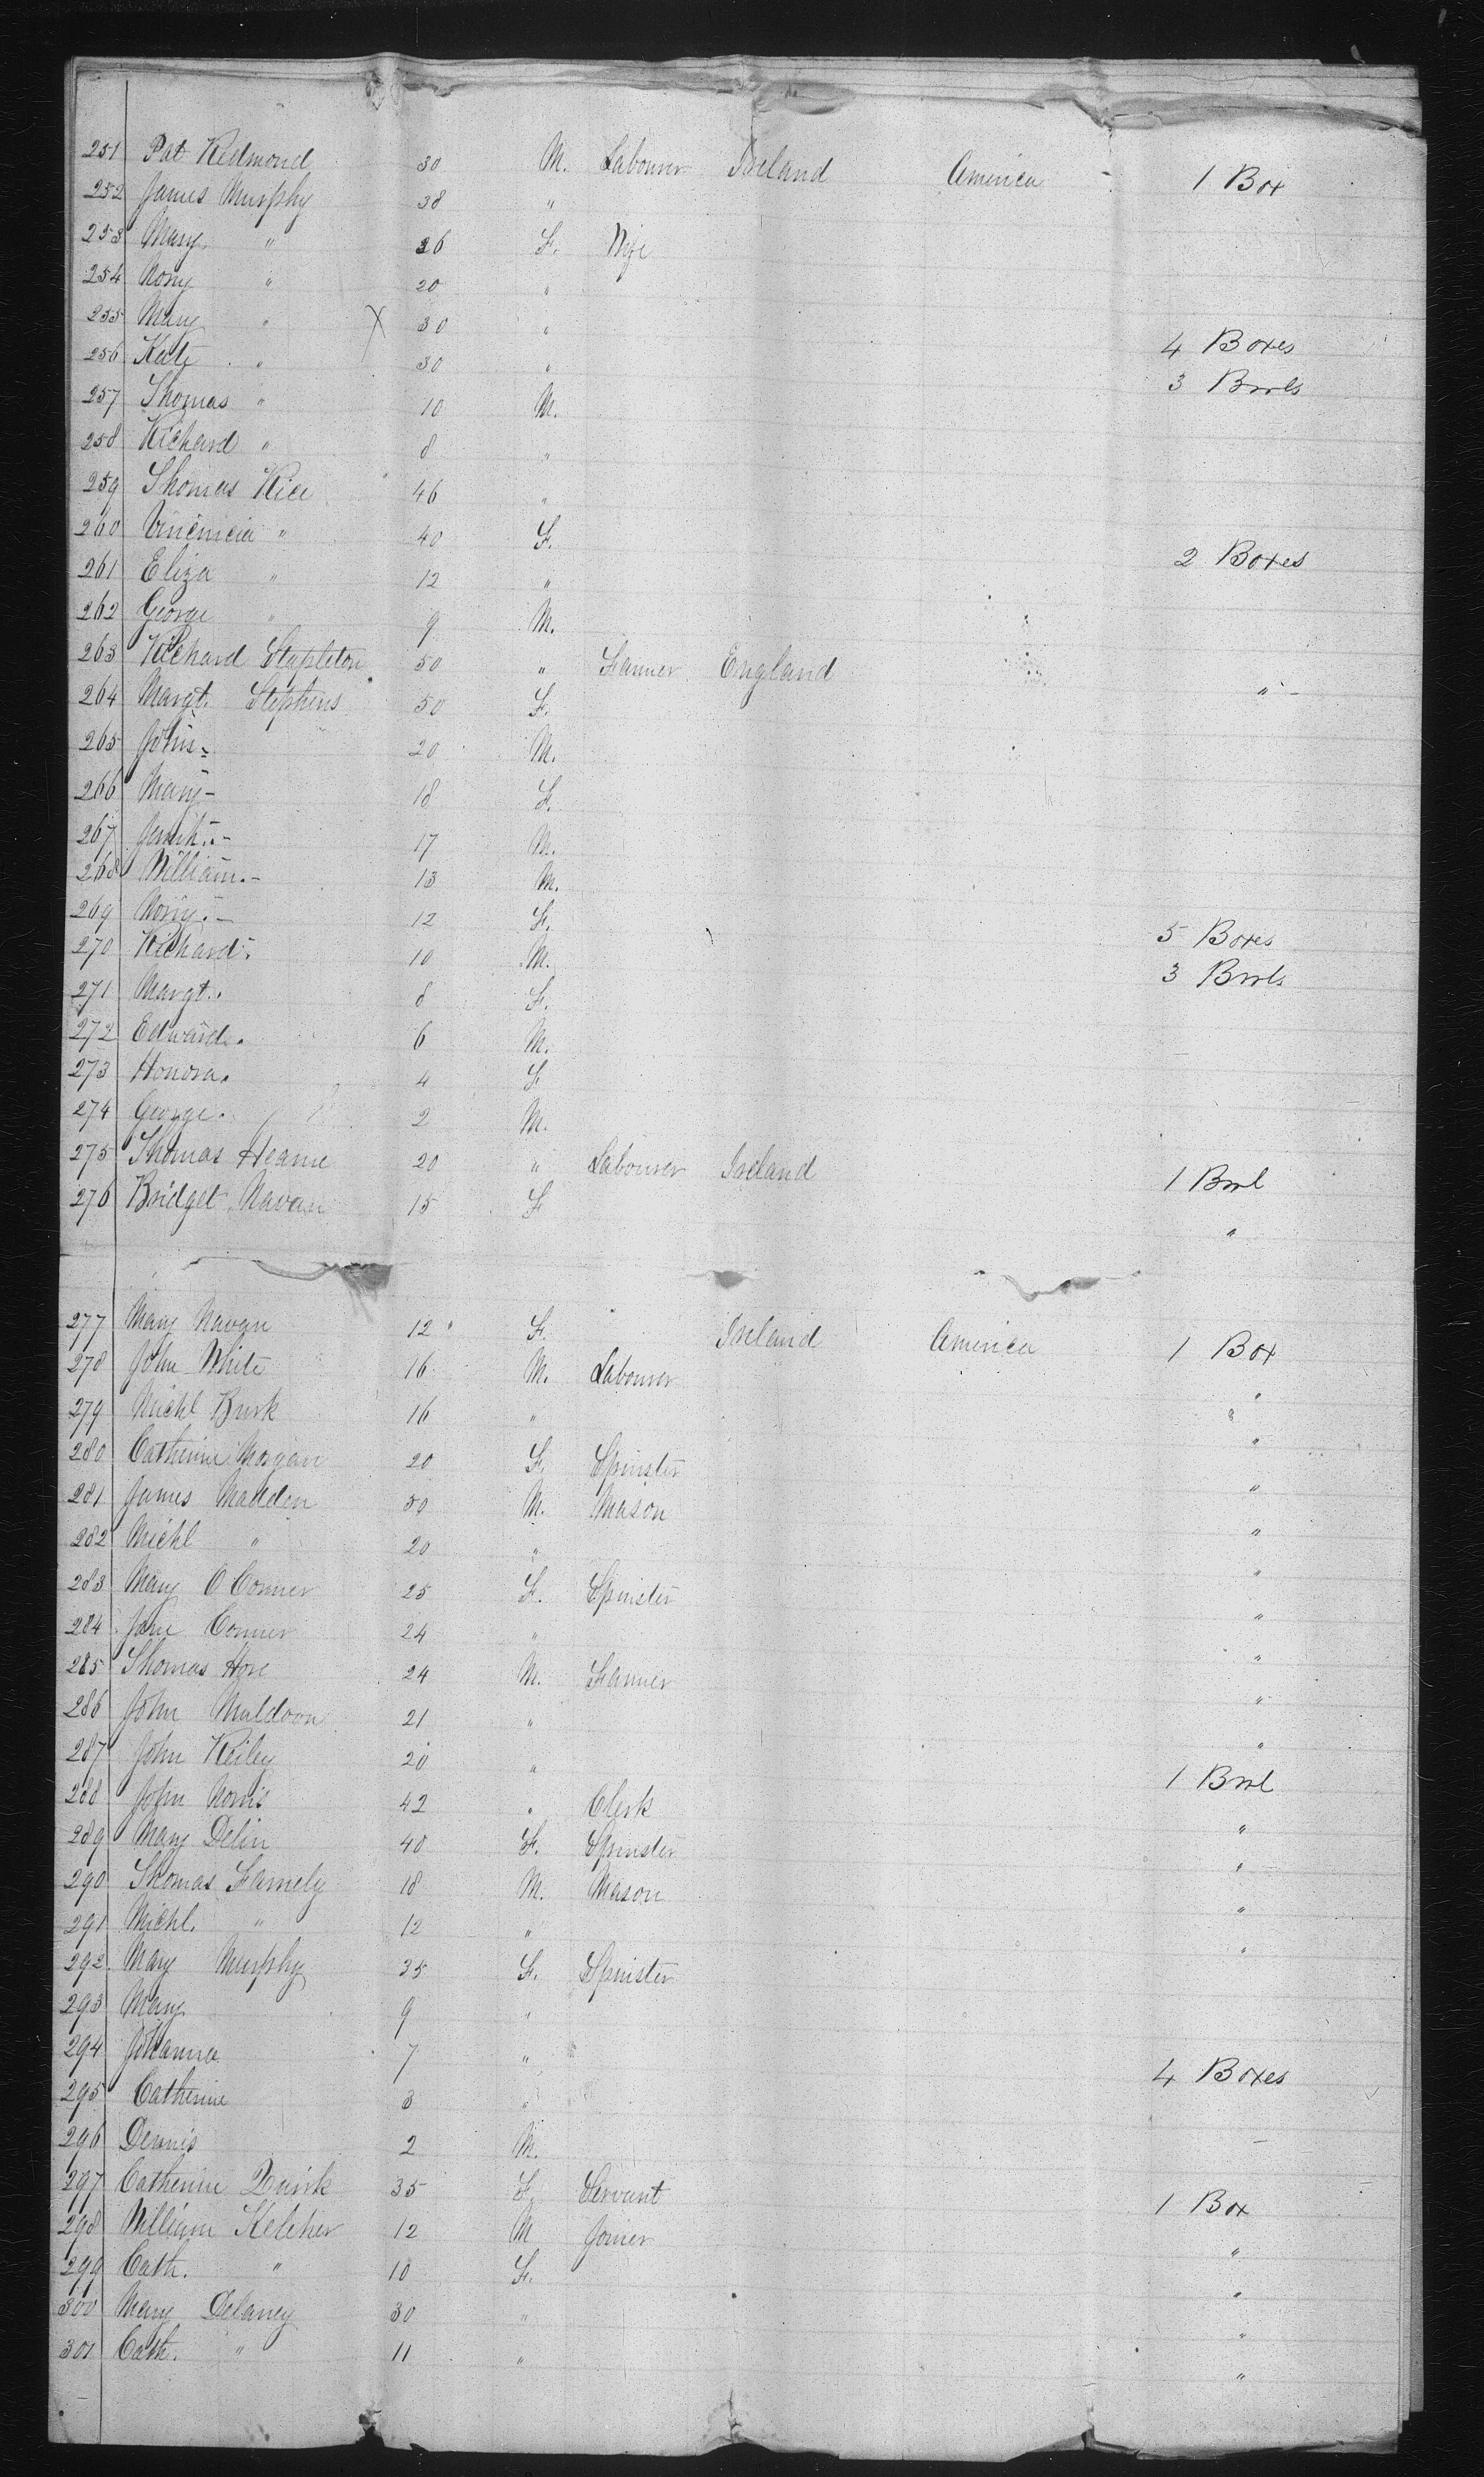 251 Pat Redmond 30 M. Labourer Ireland America 1 Box
252 James Murphy 38 "
253 Mary " 36 F. Wife
254 Nory " 20 "
255 Mary " X 30 "
4 Boxes
256 Kate " 30 "
3 Brrls
257 Thomas " 10 M.
258 Richard " 8 "
259 Thomas Rice 46 "
260 " 40 F.
2 Boxes
261 Eliza " 12 "
262 George " 9 M.
263 Richard Stapleton 50 " Farmer England
264 Margt. Stephens 50 F. "
265 John - 20 M.
266 Mary - 18 F.
267 - 17 M.
268 William. - 13 M.
269 Nory. - 12 F.
5 Boxes
270 Richard. 10 M.
3 Brrls
271 Margt. 8 F.
272 Edward. 6 M.
273 Honora. 4 F
274 George. 2 M.
275 Thomas Hearne 20 " Labourer Ireland 1 Brrl
276 Bridget Navan 15 F "
277 Mary Navan 12 F. Ireland America 1 Box
278 John White 16 M. Labourer "
279 Michl Burk 16 " "
280 Catherine Morgan 20 F. Spinster "
281 James Madden 50 M. Mason "
282 Michl " 20 " "
283 Mary O Conner 25 F. Spinster "
284 Jane Conner 24 " "
285 Thomas Hore 24 M. Farmer "
286 John Muldoon 21 " "
287 John Reiley 20 "
1 Brrl
288 John Norris 42 " Clerk "
289 Mary Delin 40 F. Spinster "
290 Thomas Farnely 18 M. Mason "
291 Michl. " 12 " "
292 Mary Murphy 35 F. Spinster
293 Mary 9 "
294 Johanna 7 "
4 Boxes
295 Catherine 3 "
296 Dennis 2 M.
297 Catherine Quirk 35 F. Servant 1 Box
298 William Keleher 12 M Joiner "
299 Cath. " 10 F. "
300 Mary Delaney 30 " "
301 Cath. " 11 " "